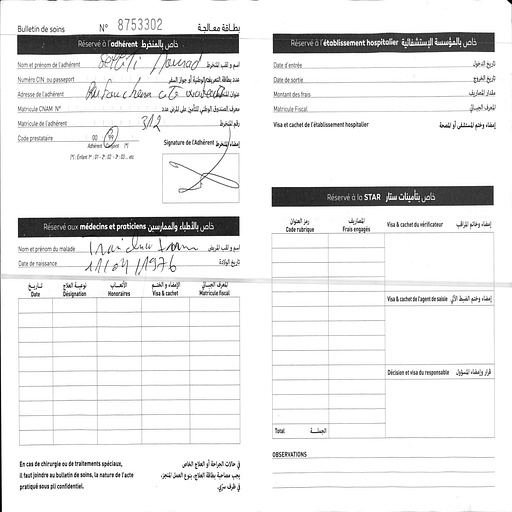 Bulletin de soins N° 8753302 بطاقة معالجة
Réservé à l'adhérent خاص بالمنخرط
Nom et prénom de l'adhérent اسم و لقب المنخرط
Numéro CIN ou passeport عدد بطاقة التعريف الوطنية أو جواز السفر
Adresse de l'adhérent عنوان المنخرط
Matricule CNAM N° معرف الصندوق الوطني للتأمين على المرض عدد
Matricule de l'adhérent 312 رقم المنخرط
Code prestataire 00 99 Signature de l'Adhérent إمضاء المنخرط
Adhérent Conjoint (*)
(*) : Enfant 1er : 01 - 2è : 02 - 3è : 03 ... etc
Réservé aux médecins et praticiens خاص بالأطباء والممارسين
Nom et prénom du malade اسم و لقب المريض
Date de naissance 11/04/1976 تاريخ الولادة
تاريخ نوعية العلاج الأتعاب الإمضاء و الختم المعرف الجبائي
Date Désignation Honoraires Visa & cachet Matricule fiscal
En cas de chirurgie ou de traitements spéciaux,
il faut joindre au bulletin de soins, la nature de l'acte
pratiqué sous pli confidentiel.
في حالات الجراحة أو العلاج الخاص
يجب مصاحبة بطاقة العلاج، بنوع العمل المنجز،
في ظرف سري.
Réservé à l'établissement hospitalier خاص بالمؤسسة الإستشفائية
Date d'entrée تاريخ الدخول
Date de sortie تاريخ الخروج
Montant des frais مقدار المصاريف
Matricule Fiscal المعرف الجبائي
Visa et cachet de l'établissement hospitalier إمضاء وختم المستشفى أو المصحة
Réservé à la STAR خاص بتأمينات ستار
رمز العنوان المصاريف
Code rubrique Frais engagés
Visa & cachet du vérificateur إمضاء وخاتم المراقب
Visa & cachet de l'agent de saisie إمضاء وختم الضبط الآلي
Décision et visa du responsable قرار وإمضاء المسؤول
Total الجملة
OBSERVATIONS